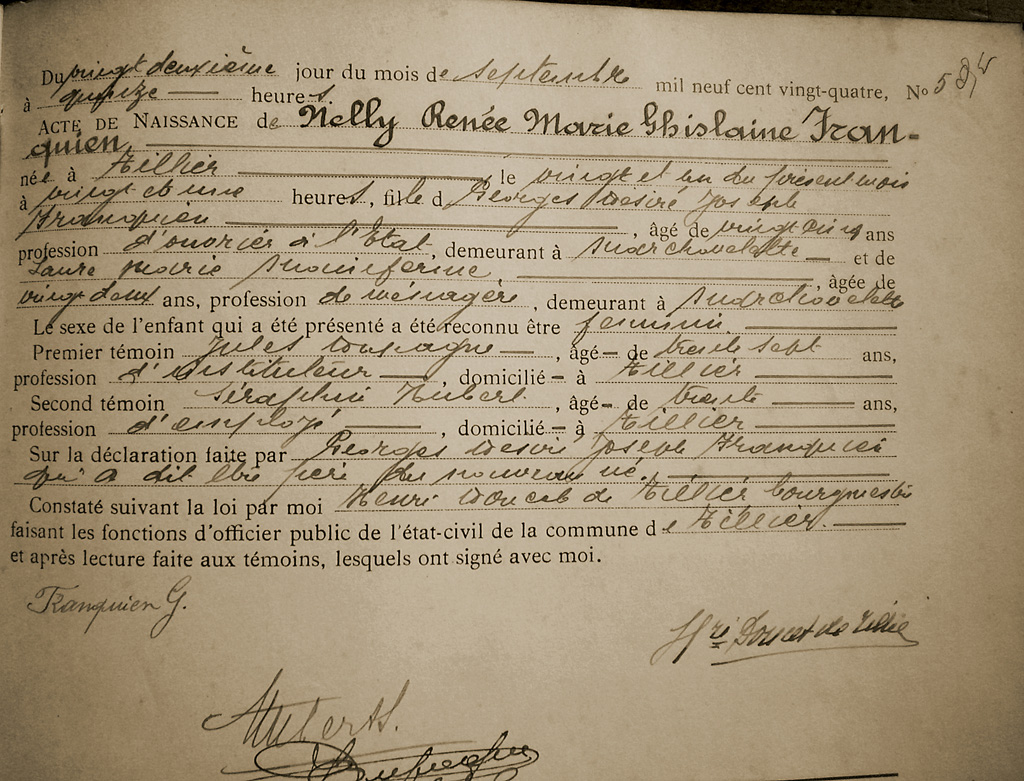 Du vingt deuxième jour du mois de septembre mil neuf cent vingt-quatre, No 5
à quinze heures.
ACTE DE NAISSANCE de Nelly Renée Marie Ghislaine Fran-
quien,
née à Tillier le vingt et un du présent mois
à vingt et une heures, fille d Georges Désiré Joseph
Franquien, âgé de vingt cinq ans
profession d'ouvrier à l'Etat, demeurant à Marchovelette et de
Laure Marie, âgée de
vingt deux ans, profession de ménagère, demeurant à Marchovelette
Le sexe de l'enfant qui a été présenté a été reconnu être féminin.
Premier témoin Jules, âgé de trente sept ans,
profession d'instituteur, domicilié à Tillier
Second témoin Séraphin Hubert, âgé de trente ans,
profession d'employé, domicilié à Tillier
Sur la déclaration faite par Georges Désiré Joseph Franquien
qui a dit être père du nouveau né.
Constaté suivant la loi par moi Henri Doucet de Tillier bourgmestre
faisant les fonctions d'officier public de l'état-civil de la commune de Tillier.
et après lecture faite aux témoins, lesquels ont signé avec moi.
Franquien G.
Hri Doucet de Tillier
Hubert S.